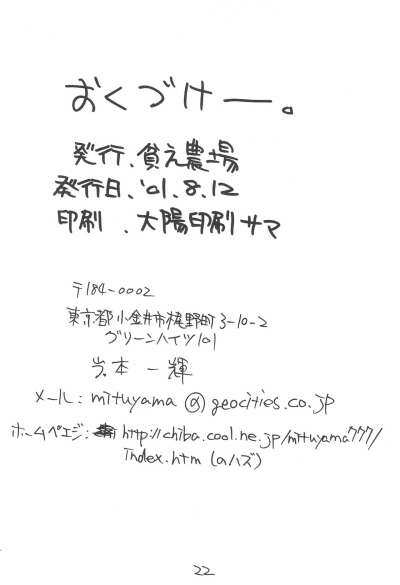 おくづけー。
発行、貧え農場
発行日、'01.8.12
印刷 、大陽印刷サマ
〒184-0002
東京都小金井市梶野町3-10-2
グリーンハイツ101
岩本 一輝
メール：mituyama@geocities.co.jp
ホームペエジ：http://chiba.cool.ne.jp/mituyama777/
index.htm (のハズ)
22